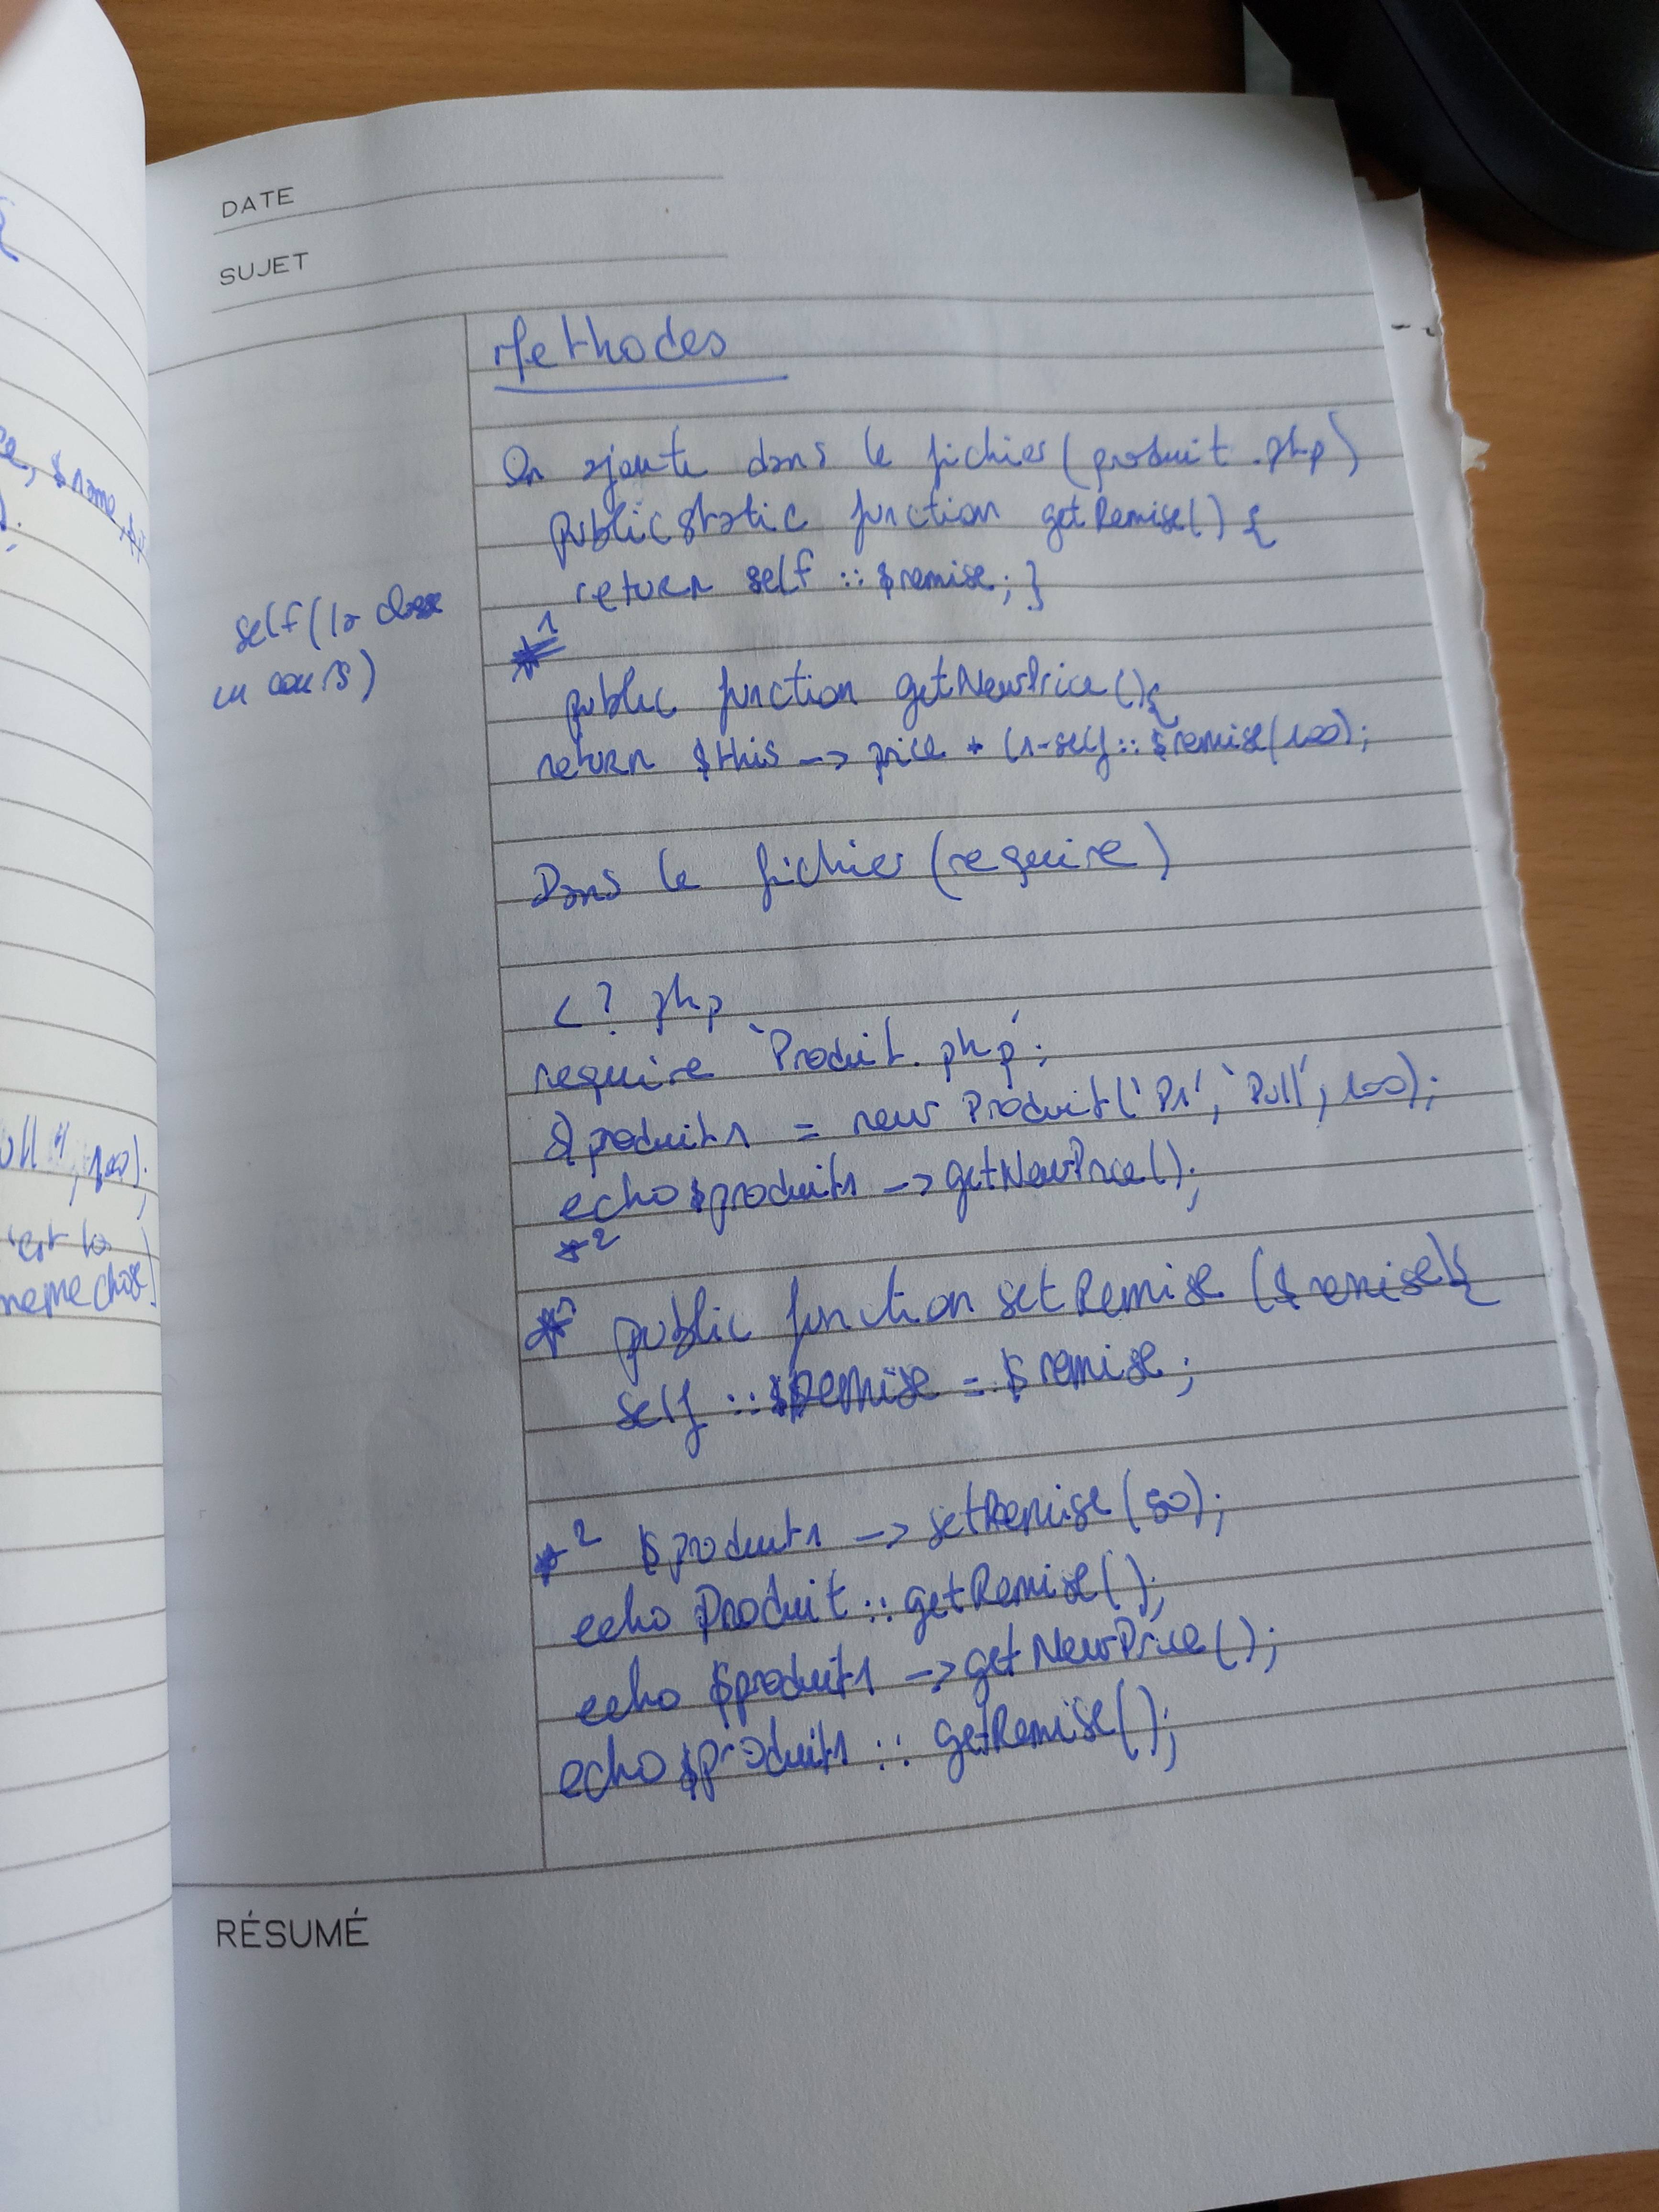 DATE
SUJET
Methodes
On ajoute dans le fichier (produit.php)
public static function getRemise() {
return self :: $remise; }
self (la classe
en cours)
*1
public function getNewPrice(){
return $this -> price * (1-self :: $remise/100);
Dans le fichier (require)
<? php
require 'Produit.php';
$produit1 = new Produit('P1', 'Pull', 100);
echo $produit1 -> getNewPrice();
*2
*1 public function setRemise ($remise){
self :: $remise = $remise;
*2 $produit1 -> setRemise (50);
echo Produit :: getRemise();
echo $produit1 -> getNewPrice();
echo $produit1 :: getRemise();
RÉSUMÉ
$name,
ull", 100);
'est la
meme chose)